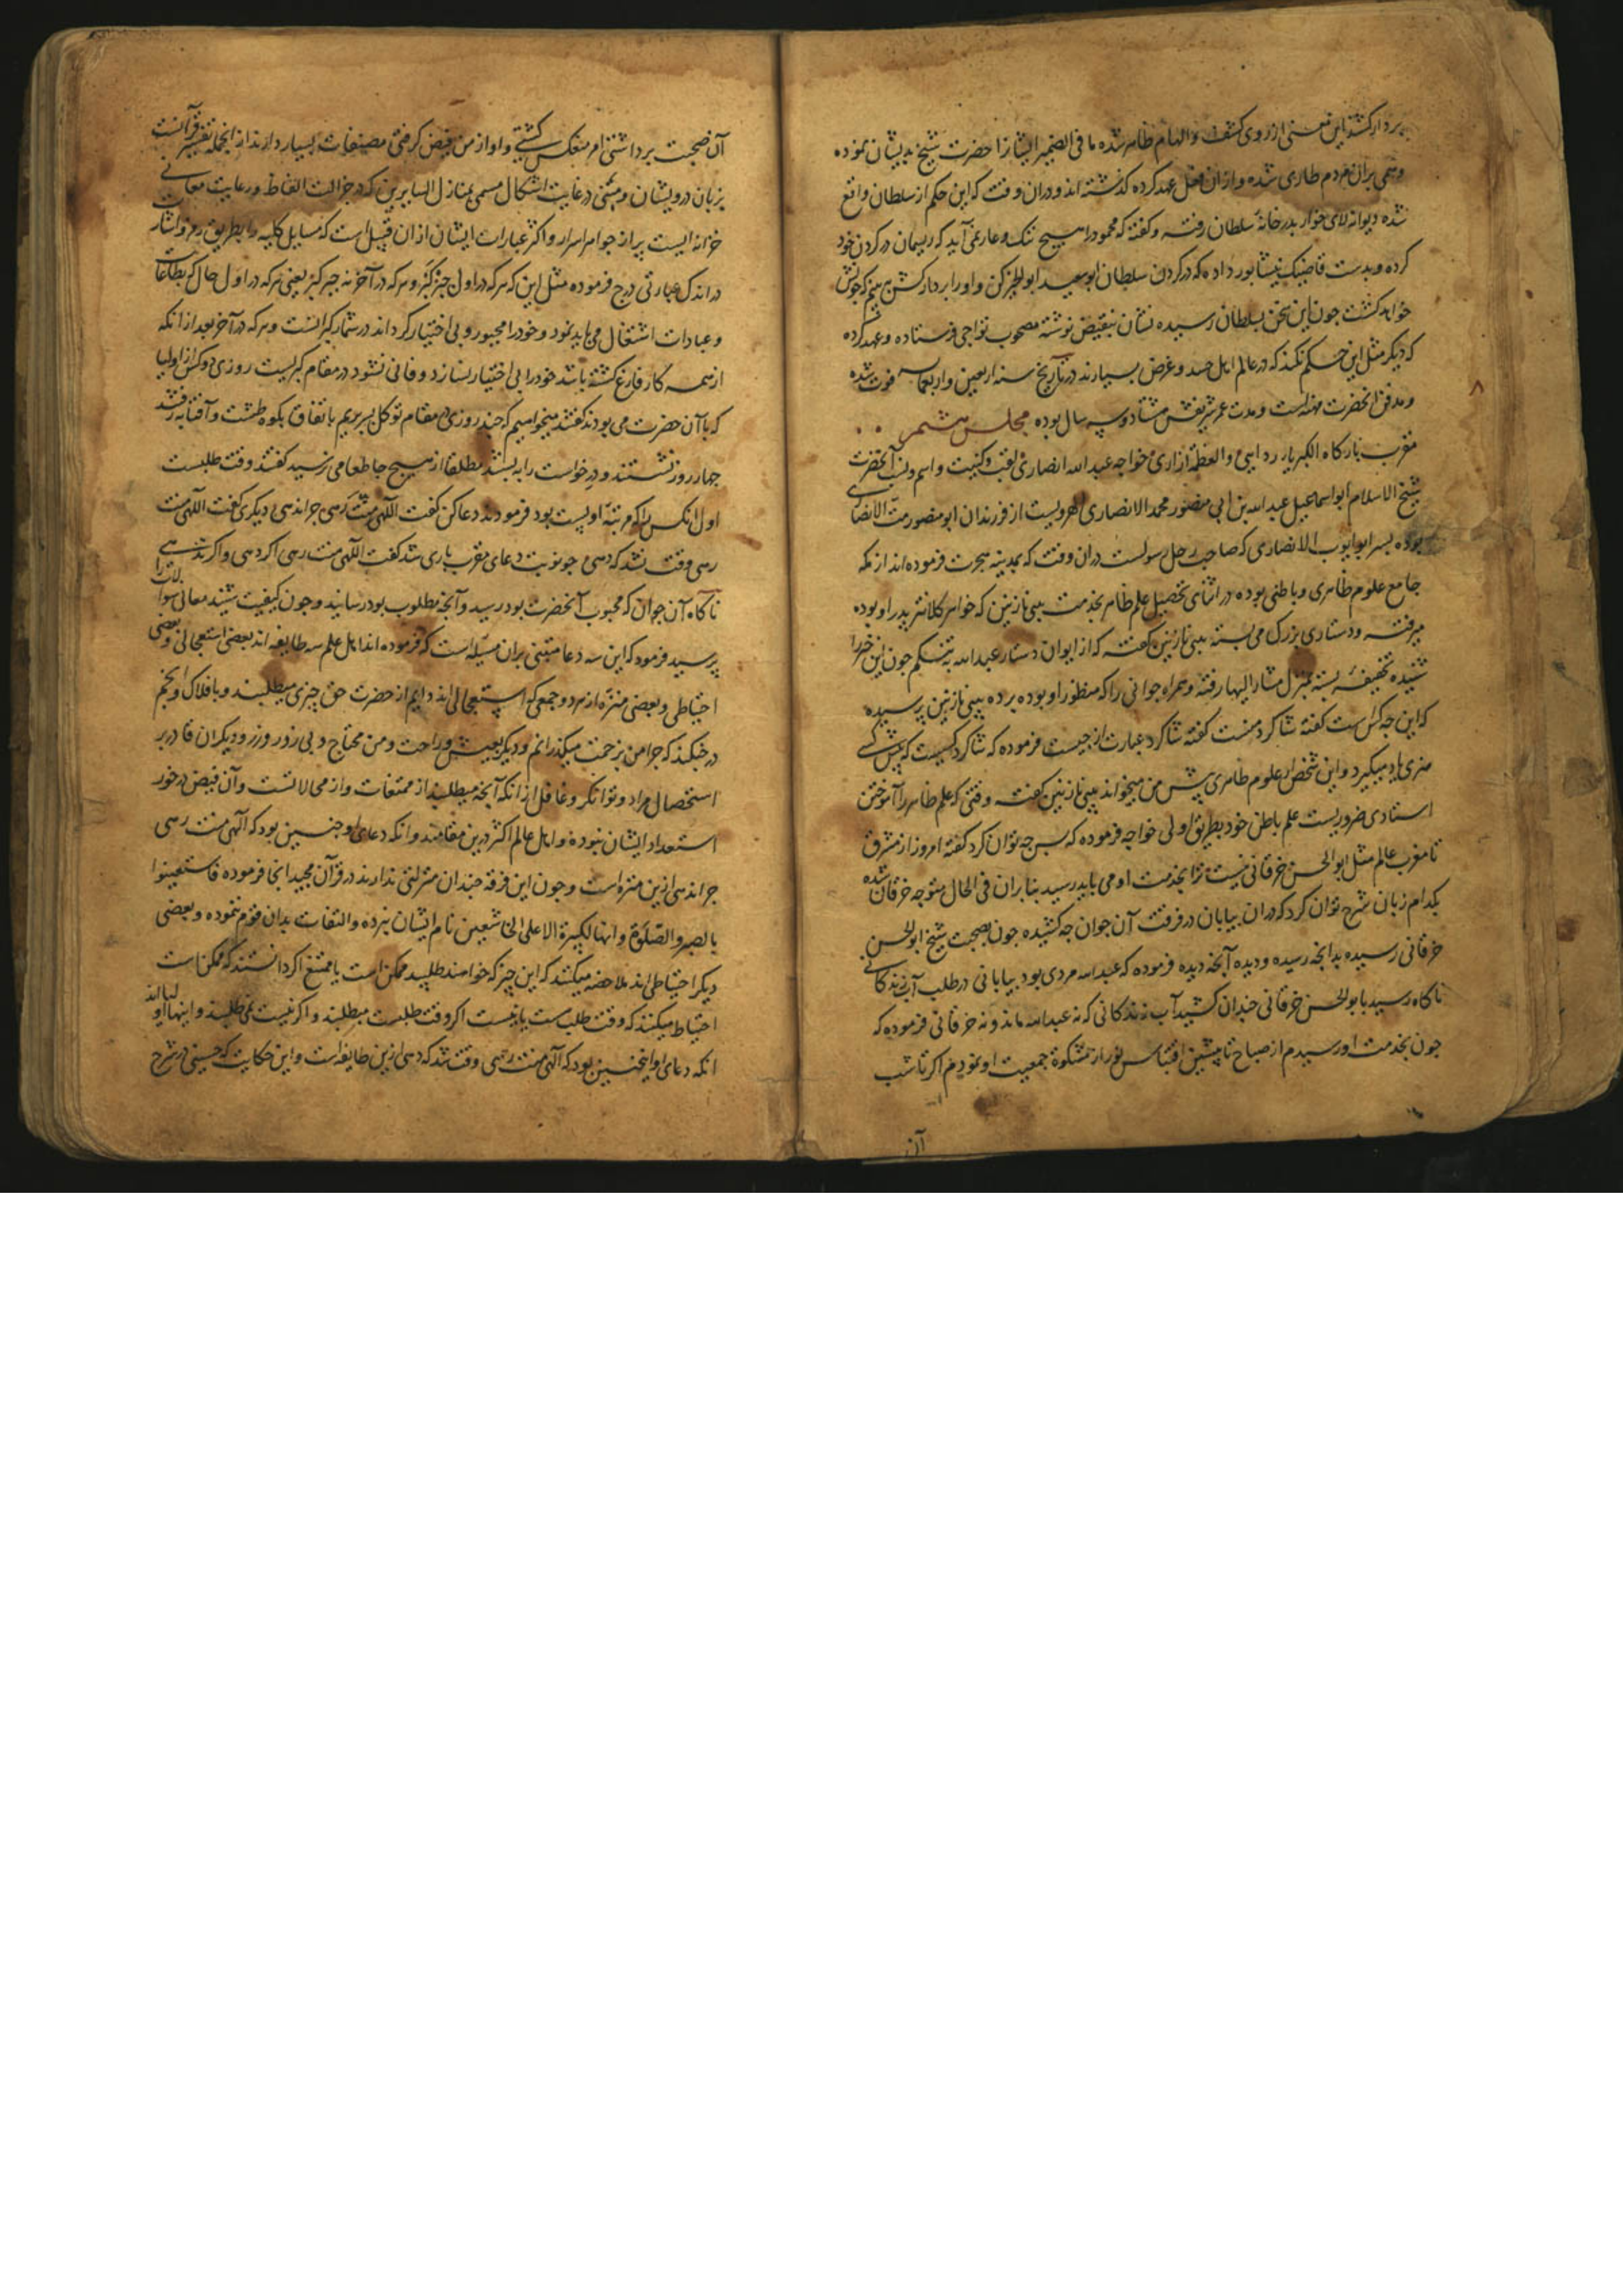 بردار کشد این معنی از روی کشف و الهام ظاهر شده ما فی الضمیر ایشانرا حضرت شیخ بدیشان نموده
وهمی بران مردم طاری شده و ازان فعل عهد کرده گذشته اند و دران وقت که این حکم از سلطان واقع
شده دیوانه لای خوار بدر خانهٔ سلطان رفته و گفته که محمود را هیچ ننگ و عار نمی آید که ریسمان در گردن خود
کرده و بدست قاضیک نیشابور داده که در گردن سلطان ابوسعید ابوالخیر کن و اورا بردار کش
خواهد گشت جون این سخن بسلطان رسیده نشان بنقیض نوشته مصحوب تواجی فرستاده و عهد کرده
که دیگر مثل این حکم نکند که در عالم اهل حسد و غرض بسیارند در تاریخ سنه اربعین و اربعمایه فوت شده
و مدفن آنحضرت مهنه است و مدت عمر شریفش هشتاد و سه سال بوده مجلس هشتم
مقرب بارگاه الکبریاء ردایی و العظمة ازاری خواجه عبدالله انصاری لقب و کنیت و اسم و نسب آنحضرت
شیخ الاسلام ابواسماعیل عبدالله بن ابی منصور محمد الانصاری الهرویست از فرزندان ابو منصور مت الانصاری
بوده پسر ابو ایوب الانصاری که صاحب رحل رسولست دران وقت که بمدینه هجرت فرموده اند از مکه
جامع علوم ظاهری و باطنی بوده در اثنای تحصیل علم ظاهر بخدمت بیبی نازنین که خواهر کلانتر پدر او بوده
میرفته و دستاری بزرگ می بسته بیبی نازنین گفته که از ایوان دستار عبدالله به تنگم جون این خبر را
شنیده تخفیفهٔ بسته بمنزل مشار الیها رفته و همراه جوانی را که منظور او بوده برده بیبی نازنین پرسیده
که این چه کس است گفته شاگرد منست گفته شاگرد عبارت از جیست فرموده که شاگرد کسیست که پیش کسی
هنری یاد میگیرد و این شخص از علوم ظاهری پیش من میخواند بیبی نازنین گفته وقتی که علم ظاهر را آموختن
استادی ضروریست علم باطن خود بطریق اولی خواجه فرموده که پس چه توان کرد گفته امروز از مشرق
تا مغرب عالم مثل ابوالحسن خرقانی نیست ترا بخدمت او می باید رسید بنابران فی الحال متوجه خرقان شده
بکدام زبان شرح توان کرد که دران بیابان در فرقت آن جوان چه کشیده جون بصحبت شیخ ابوالحسن
خرقانی رسیده بدانجه رسیده و دیده آنجه دیده فرموده که عبدالله مردی بود بیابانی در طلب آب زندگانی
ناگاه رسید بابوالحسن خرقانی جندان کشید آب زندگانی که نه عبدالله ماند و نه خرقانی فرموده که
جون بخدمت او رسیدم از صباح تا پیشین اقتباس نور از مشکوة جمعیت او نمودم اگر تا شب
آن
آن صحبت برداشتی امر منعکس گشتی و او از من فیض گرفتی مصنفات بسیار دارند از انجمله تفسیر قرآنست
بزبان درویشان و متنی در غایت اشکال مسمی بمنازل السایرین که در جزالت الفاظ و رعایت معانی
خزانه ایست پر از جواهر اسرار و اکثر عبارات ایشان ازان قبیل است که مسایل کلیه را بطریق رمز و اشارت
در اندک عبارتی درج فرموده مثل این که هر که در اول جبر گبر و هر که در آخر نه جبر گبر یعنی هر که در اول حال که بطاعات
و عبادات اشتغال می باید نمود و خود را مجبور و بی اختیار گرداند در شمار گبرانست و هر که در آخر بعد از انکه
از همه کار فارغ گشته باشد خود را بی اختیار نسازد و فانی نشود در مقام گبریست روزی دو کس از اولیا
که با آن حضرت می بودند گفتند میخواهیم که جند روزی در مقام توکل بسر بریم باتفاق بکوه طشت و آفتابه رفتند
جهار روز نشستند و در خواست را به بستند مطلقا از هیچ جا طعامی نرسید گفتند وقت طلبست
اول انکس را که مرتبهٔ او پست بود فرمودند دعا کن گفت الٓهی مت رهی جرا ندهی دیگری گفت الٓهی مت
رهی وقت شد که دهی جو نوبت دعای مقرب باری شد گفت الٓهی مت رهی اگر دهی و اگر ندهی
ناگاه آن جوان که محبوب آنحضرت بود رسید و آنجه مطلوب بود رسانید و جون کیفیت شنید معانی سوالات را
پرسید فرمود که این سه دعا مبتنی بران مسئله است که فرموده اند اهل علم سه طایفه اند بعضی استعجالی و بعضی
احتیاطی و بعضی منزه از هر دو جمعی که استعجالی اند دایم از حضرت حق چیزی میطلبند و با فلاک و انجم
در جنگند که جرا من بزحمت میگذرانم و دیگر بعیش و راحت و من محتاج و بی زور و زر و دیگران قادر بر
استحصال مراد و توانگر و غافل از انکه آنجه میطلبند از ممتنعات و از محالاتست و آن فیض در خور
استعداد ایشان نبوده و اهل عالم اکثر درین مقامند و انکه دعای او جنین بود که الٓهی مت رهی
جرا ندهی ازین منزه است و جون این فرقه جندان منزلتی ندارند در قرآن مجید انجا فرموده فاستعینوا
بالصبر و الصلوة و انها لکبیرة الا علی الخاشعین نام ایشان نبرده و التفات بدان قوم ننموده و بعضی
دیگر احتیاطی اند ملاحضه میکنند که این چیز که خواهند طلبید ممکن است یا ممتنع اگر دانستند که ممکن است
احتیاط میکنند که وقت طلب هست یا نیست اگر وقت طلبست میطلبند و اگر نیست نمی طلبند و اینها اولیااند
انکه دعای او اینجنین بود که الٓهی مت رهی وقت شد که دهی ازین طایفه است و این حکایت که حسینی در شرح